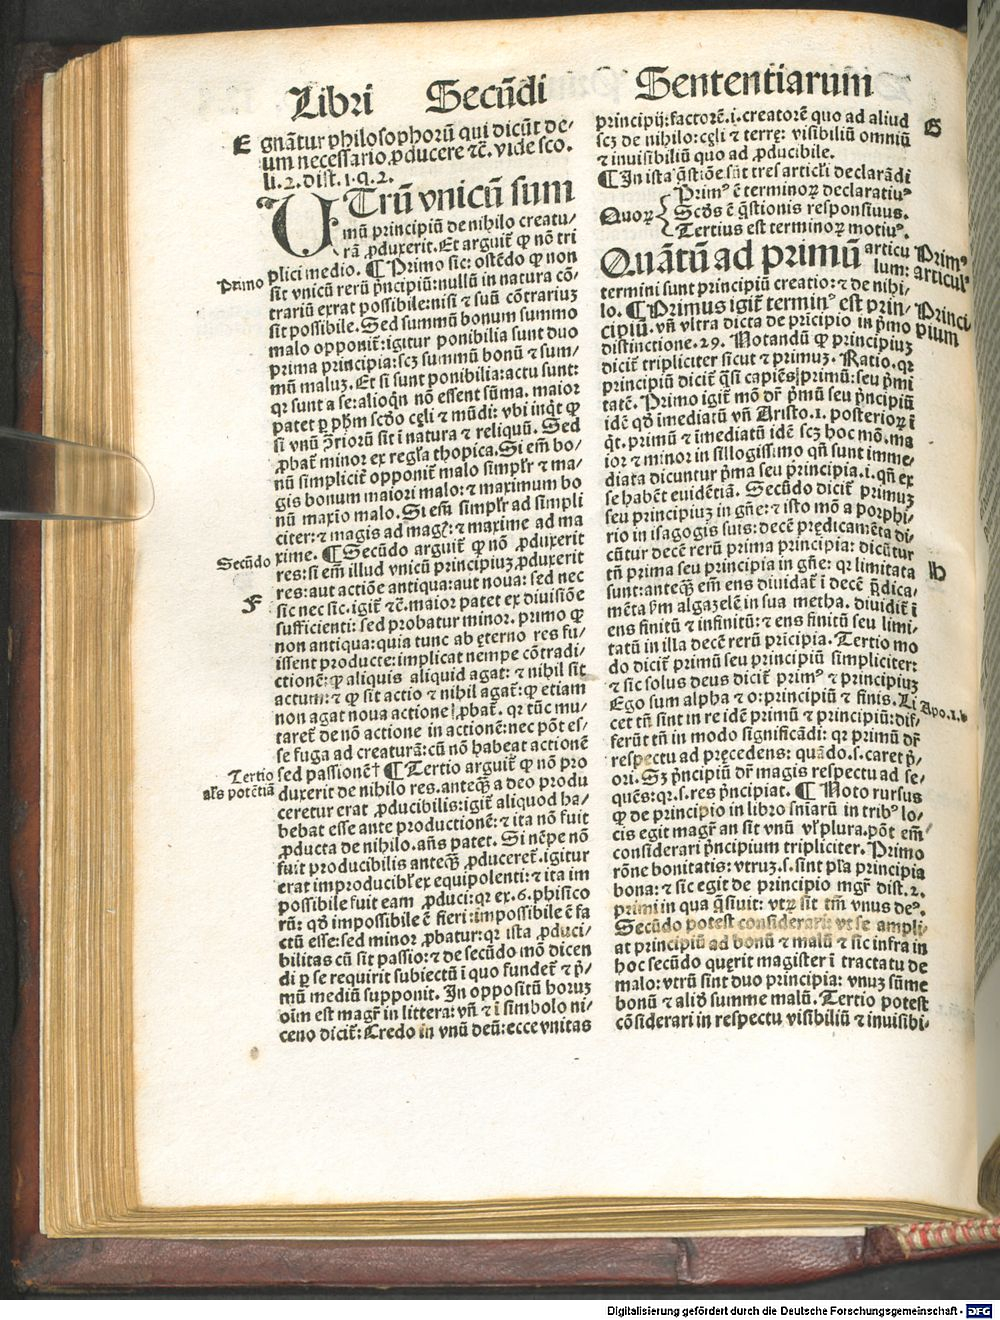 Libri Secūdi Sententiarum
E
gnātur philosophorū qui dicūt de⸗
um necessario ꝓducere ⁊c̄. vide sco.
li. 2. dist. 1. q. 2.
UTrū vnicū sum
mū principiū de nihilo creatu⸗
rā ꝓduxerit. Et arguit̄ ꝙ nō tri
plici medio. ¶ Primo sic: ostēdo ꝙ non
Primo
sit vnicū rerū pncipiū: nullū in natura cō⸗
trariū exrat possibile: nisi ⁊ suū cōtrariuz
sit possibile. Sed summū bonum summo
malo opponit̄: igitur ponibilia sunt duo
prima principia: scz summū bonū ⁊ sum⸗
mū maluz. Et si sunt ponibilia: actu sunt:
qr sunt a se: alioqn nō essent sūma. maior
patet ꝑ phm scdo cęli ⁊ mūdi: vbi inqt ꝙ
si vnū ꝯriorū sit ī natura ⁊ reliquū. Sed
ꝓbat̄ minor ex regla thopica. Si em̄ bo⸗
nū simplicit̄ opponit̄ malo simplr ⁊ ma⸗
gis bonum maiori malo: ⁊ maximum bo
nū maxīo malo. Si em̄ simplr ad simpli
citer: ⁊ magis ad mag: ⁊ maxime ad ma
xime. ¶ Secūdo arguit̄ ꝙ nō ꝓduxerit
Secūdo
res: si em̄ illud vnicū principiuz ꝓduxerit
res: aut actiōe antiqua: aut noua: sed nec
F
sic nec sic. igit̄ ⁊c̄. maior patet ex diuisiōe
sufficienti: sed probatur minor. primo ꝙ
non antiqua: quia tunc ab ęterno res fu⸗
issent producte: implicat nempe cōtradi⸗
ctionē: ꝙ aliquis aliquid agat: ⁊ nihil sit
actum: ⁊ ꝙ sit actio ⁊ nihil agat̄: ꝙ etiam
non agat noua actione ꝓbat̄. qr tūc mu⸗
taret̄ de nō actione in actionē: nec pōt es⸗
se fuga ad creaturā: cū nō habeat actionē
sed passionē† ¶ Tertio arguit̄ ꝙ nō pro
Tertio
als potētiā
duxerit de nihilo res. anteqꝫ a deo produ
ceretur erat ꝓducibilis: igit̄ aliquod ha⸗
bebat esse ante productionē: ⁊ ita nō fuit
ꝓducta de nihilo. añs patet. Si nēpe nō
fuit producibilis anteqꝫ ꝓduceret̄. igitur
erat improducibl̄ ex equipolenti: ⁊ ita im
possibile fuit eam ꝓduci: qr ex. 6. phisico
rū: qd impossibile ē fieri: impossibile ē fa
ctū esse: sed minor ꝓbatur: qr ista ꝓduci⸗
bilitas cū sit passio: ⁊ de secūdo mō dicen
di ꝑ se requirit subiectū ī quo fundet̄ ⁊ p⸗
mū mediū supponit. In oppositū horuz
oim est magr̄ in littera: vn̄ ⁊ ī simbolo ni⸗
ceno dicit̄: Credo in vnū deū: ecce vnitas
principij: factorē. i. creatorē quo ad aliud
G
scz de nihilo: cęli ⁊ terrę: visibiliū omniū
⁊ inuisibiliū quo ad ꝓducibile.
¶ In ista q̄stiōe sūt tres articli declarādi
Quoꝝ
Primꝰ ē terminoꝝ declaratiuꝰ
Scds ē q̄stionis responsiuus.
Tertius est terminoꝝ motiuꝰ.
Quātū ad primū articu
lum:
Primꝰ
articulꝰ
termini sunt principiū creatio: ⁊ de nihi⸗
lo. ¶ Primus igit̄ terminꝰ est prin⸗
cipiū. vn̄ vltra dicta de pricipio in pmo
Princi
pium
distinctione. 29. Notandū ꝙ principiuz
dicit̄ tripliciter sicut ⁊ primuz. Ratio. qr
principiū dicit̄ qsi capiēs primū: seu pmi
tatē. Primo igit̄ mō dr pmū seu pncipiū
idē qd īmediatū vn̄ Aristo. 1. posterioꝝ ī
qt. primū ⁊ īmediatū idē scz hoc mō. ma
ior ⁊ minor in sillogissimo qn̄ sunt imme⸗
diata dicuntur pma seu principia. i. qn̄ ex
se habēt euidētiā. Secūdo dicit̄ primuz
seu principiuz in gn̄e: ⁊ isto mō a porphi⸗
rio in isagogis suis: decē prędicamēta di⸗
cūtur decē rerū prima principia: dicūtur
tn̄ prima seu principia in gn̄e: qr limitata
H
sunt: anteqꝫ em̄ ens diuidat̄ ī decē p̄dica⸗
mēta ẜm algazelē in sua metha. diuidit̄ ī
ens finitū ⁊ infinitū: ⁊ ens finitū seu limi⸗
tatū in illa decē rerū pricipia. Tertio mo
do dicit̄ primū seu principiū simpliciter:
⁊ sic solus deus dicit̄ primꝰ ⁊ principiuz
Ego sum alpha ⁊ o: principiū ⁊ finis. Li
Apo. 1. b
cet tn̄ sint in re idē primū ⁊ principiū: dif⸗
ferūt tn̄ in modo significādi: qr primū dr̄
respectu ad pręcedens: quādo. s. caret p⸗
ori. Sz pncipiū dr̄ magis respectu ad se⸗
quēs: qr. s. res pncipiat. ¶ Noto rursus
ꝙ de principio in libro sniarū in tribꝰ lo⸗
cis egit magr̄ an sit vnū vl̄ plura. pōt em̄
considerari pncipium tripliciter. Primo
rōne bonitatis: vtruz. s. sint pla principia
bona: ⁊ sic egit de principio mgr̄ dist. 2.
primi in qua q̄siuit: vtꝝ sit tm̄ vnus deꝰ.
Secūdo potest considerari: vt se ampli⸗
at principiū ad bonū ⁊ malū ⁊ sic infra in
hoc secūdo quęrit magister ī tractatu de
malo: vtrū sint duo principia: vnuz sūme
bonū ⁊ aliḋ summe malū. Tertio potest
cōsiderari in respectu visibiliū ⁊ inuisibi⸗
Digitalisierung gefördert durch die Deutsche Forschungsgemeinschaft - DFG